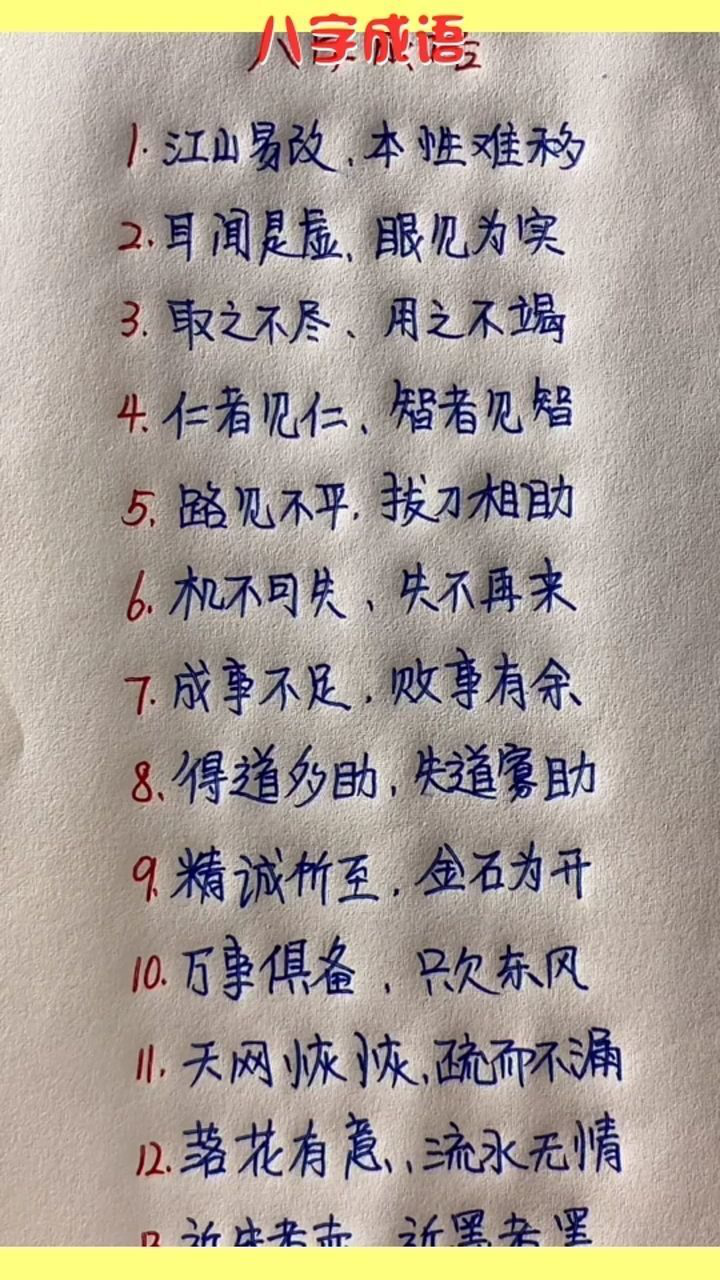 八字成语
1.江山易改、本性难移
2.耳闻是虚、眼见为实
3.取之不尽、用之不竭
4.仁者见仁、智者见智
5.路见不平,拔刀相助
6.机不可失、失不再来
7.成事不足,败事有余
8.得道多助,失道寡助
9.精诚所至,金石为开
10.万事俱备,只欠东风
11.天网恢恢,疏而不漏
12.落花有意,流水无情
近朱者赤 近墨者黑